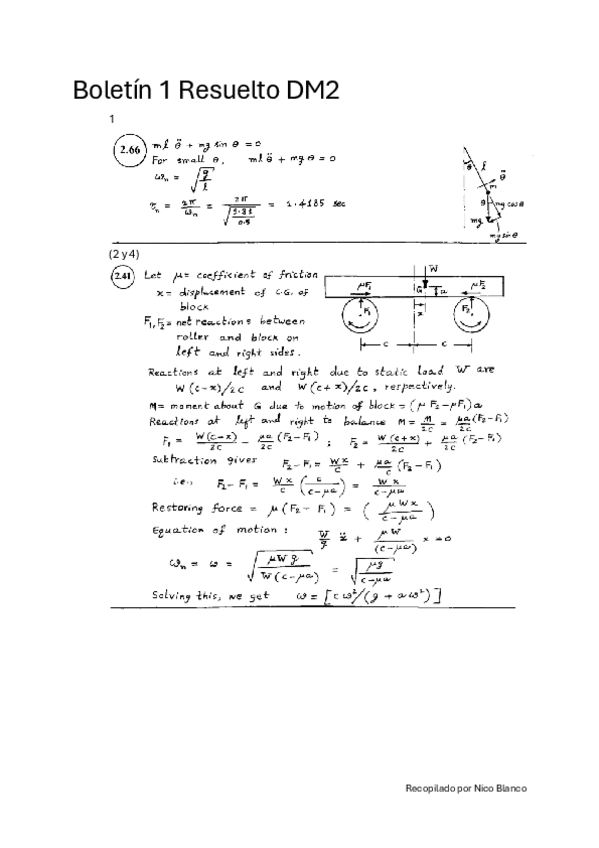 Boletín 1 Resuelto DM2
1
2.66
m l θ̈ + mg sin θ = 0
For small θ, m l θ̈ + mg θ = 0
ωn = √(g/l)
τn = 2π/ωn = 2π/√(9.81/0.5) = 1.4185 sec
θ l
θ̈
m
θ mg cos θ
mg
mg sin θ
(2 y 4)
2.41
Let μ = coefficient of friction
x = displacement of C.G. of
block
F1, F2 = net reactions between
roller and block on
left and right sides.
W
μF1 G a μF2
F1 x F2
c c
Reactions at left and right due to static load W are
W(c-x)/2c and W(c+x)/2c, respectively.
M = moment about G due to motion of block = (μF2 - μF1) a
Reactions at left and right to balance M = M/2c = μa/2c (F2 - F1)
F1 = W(c-x)/2c - μa/2c (F2 - F1) ; F2 = W(c+x)/2c + μa/2c (F2 - F1)
Subtraction gives F2 - F1 = Wx/c + μa/c (F2 - F1)
i.e., F2 - F1 = Wx/c (c/(c-μa)) = Wx/(c-μa)
Restoring force = μ(F2 - F1) = (μWx/(c-μa))
Equation of motion : W/g ẍ + μW/(c-μa) x = 0
ωn = ω = √(μWg/W(c-μa)) = √(μg/(c-μa))
Solving this, we get ω = [cω²/(g + aω²)]
Recopilado por Nico Blanco